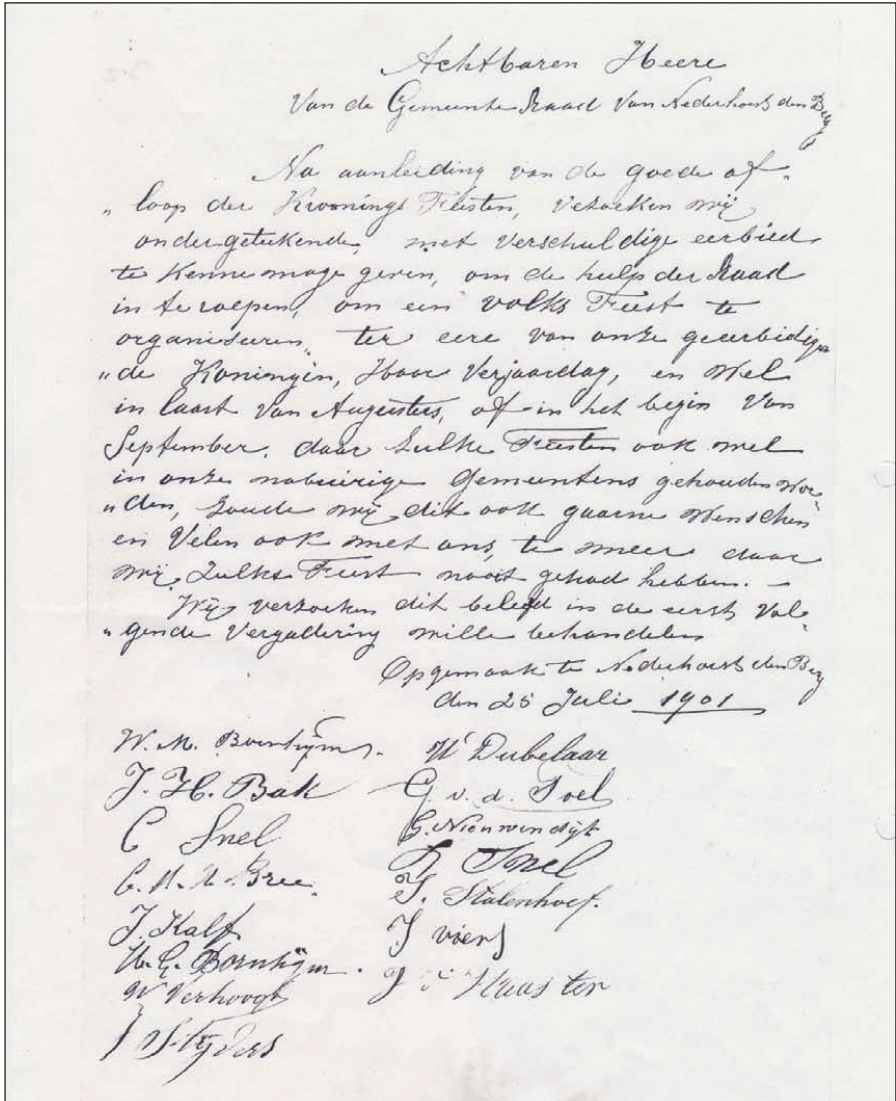 Achtbaren Heere
Van de Gemeente Raad van Nederhorst den Berg
Na aanleiding van de goede af„
„loop der Kroonings Feesten, verzoeken wij
ondergetekende, met verschuldige eerbied
te kenne moge geven, om de hulp der Raad
in te roepen, om een volks Feest te
organiseeren, ter eere van onze geeerbidig„
„de Koningin, Haar Verjaardag, en Wel
in laast van Augustus, of in het begin van
September. daar zulke Feesten ook wel
in onze nabuirige Gemeentens gehouden wor„
„den, zoude wij dit ook gaarne Wenschen
en Velen ook met ons, te meer daar
wij zulks Feest nooit gehad hebben. –
Wij verzoeken dit beleefd in de eerst Vol„
„gende Vergadering wille behandelen
Opgemaakt te Nederhorst den Berg
den 25 Juli 1901
W. M. Dubelaar
J. H. Bak G. v. d. Poel
C Snel G. Nieuwendijk
Bree Snel
J. Kalf Stalenhoef.
J
W Verhoogt J Haaster